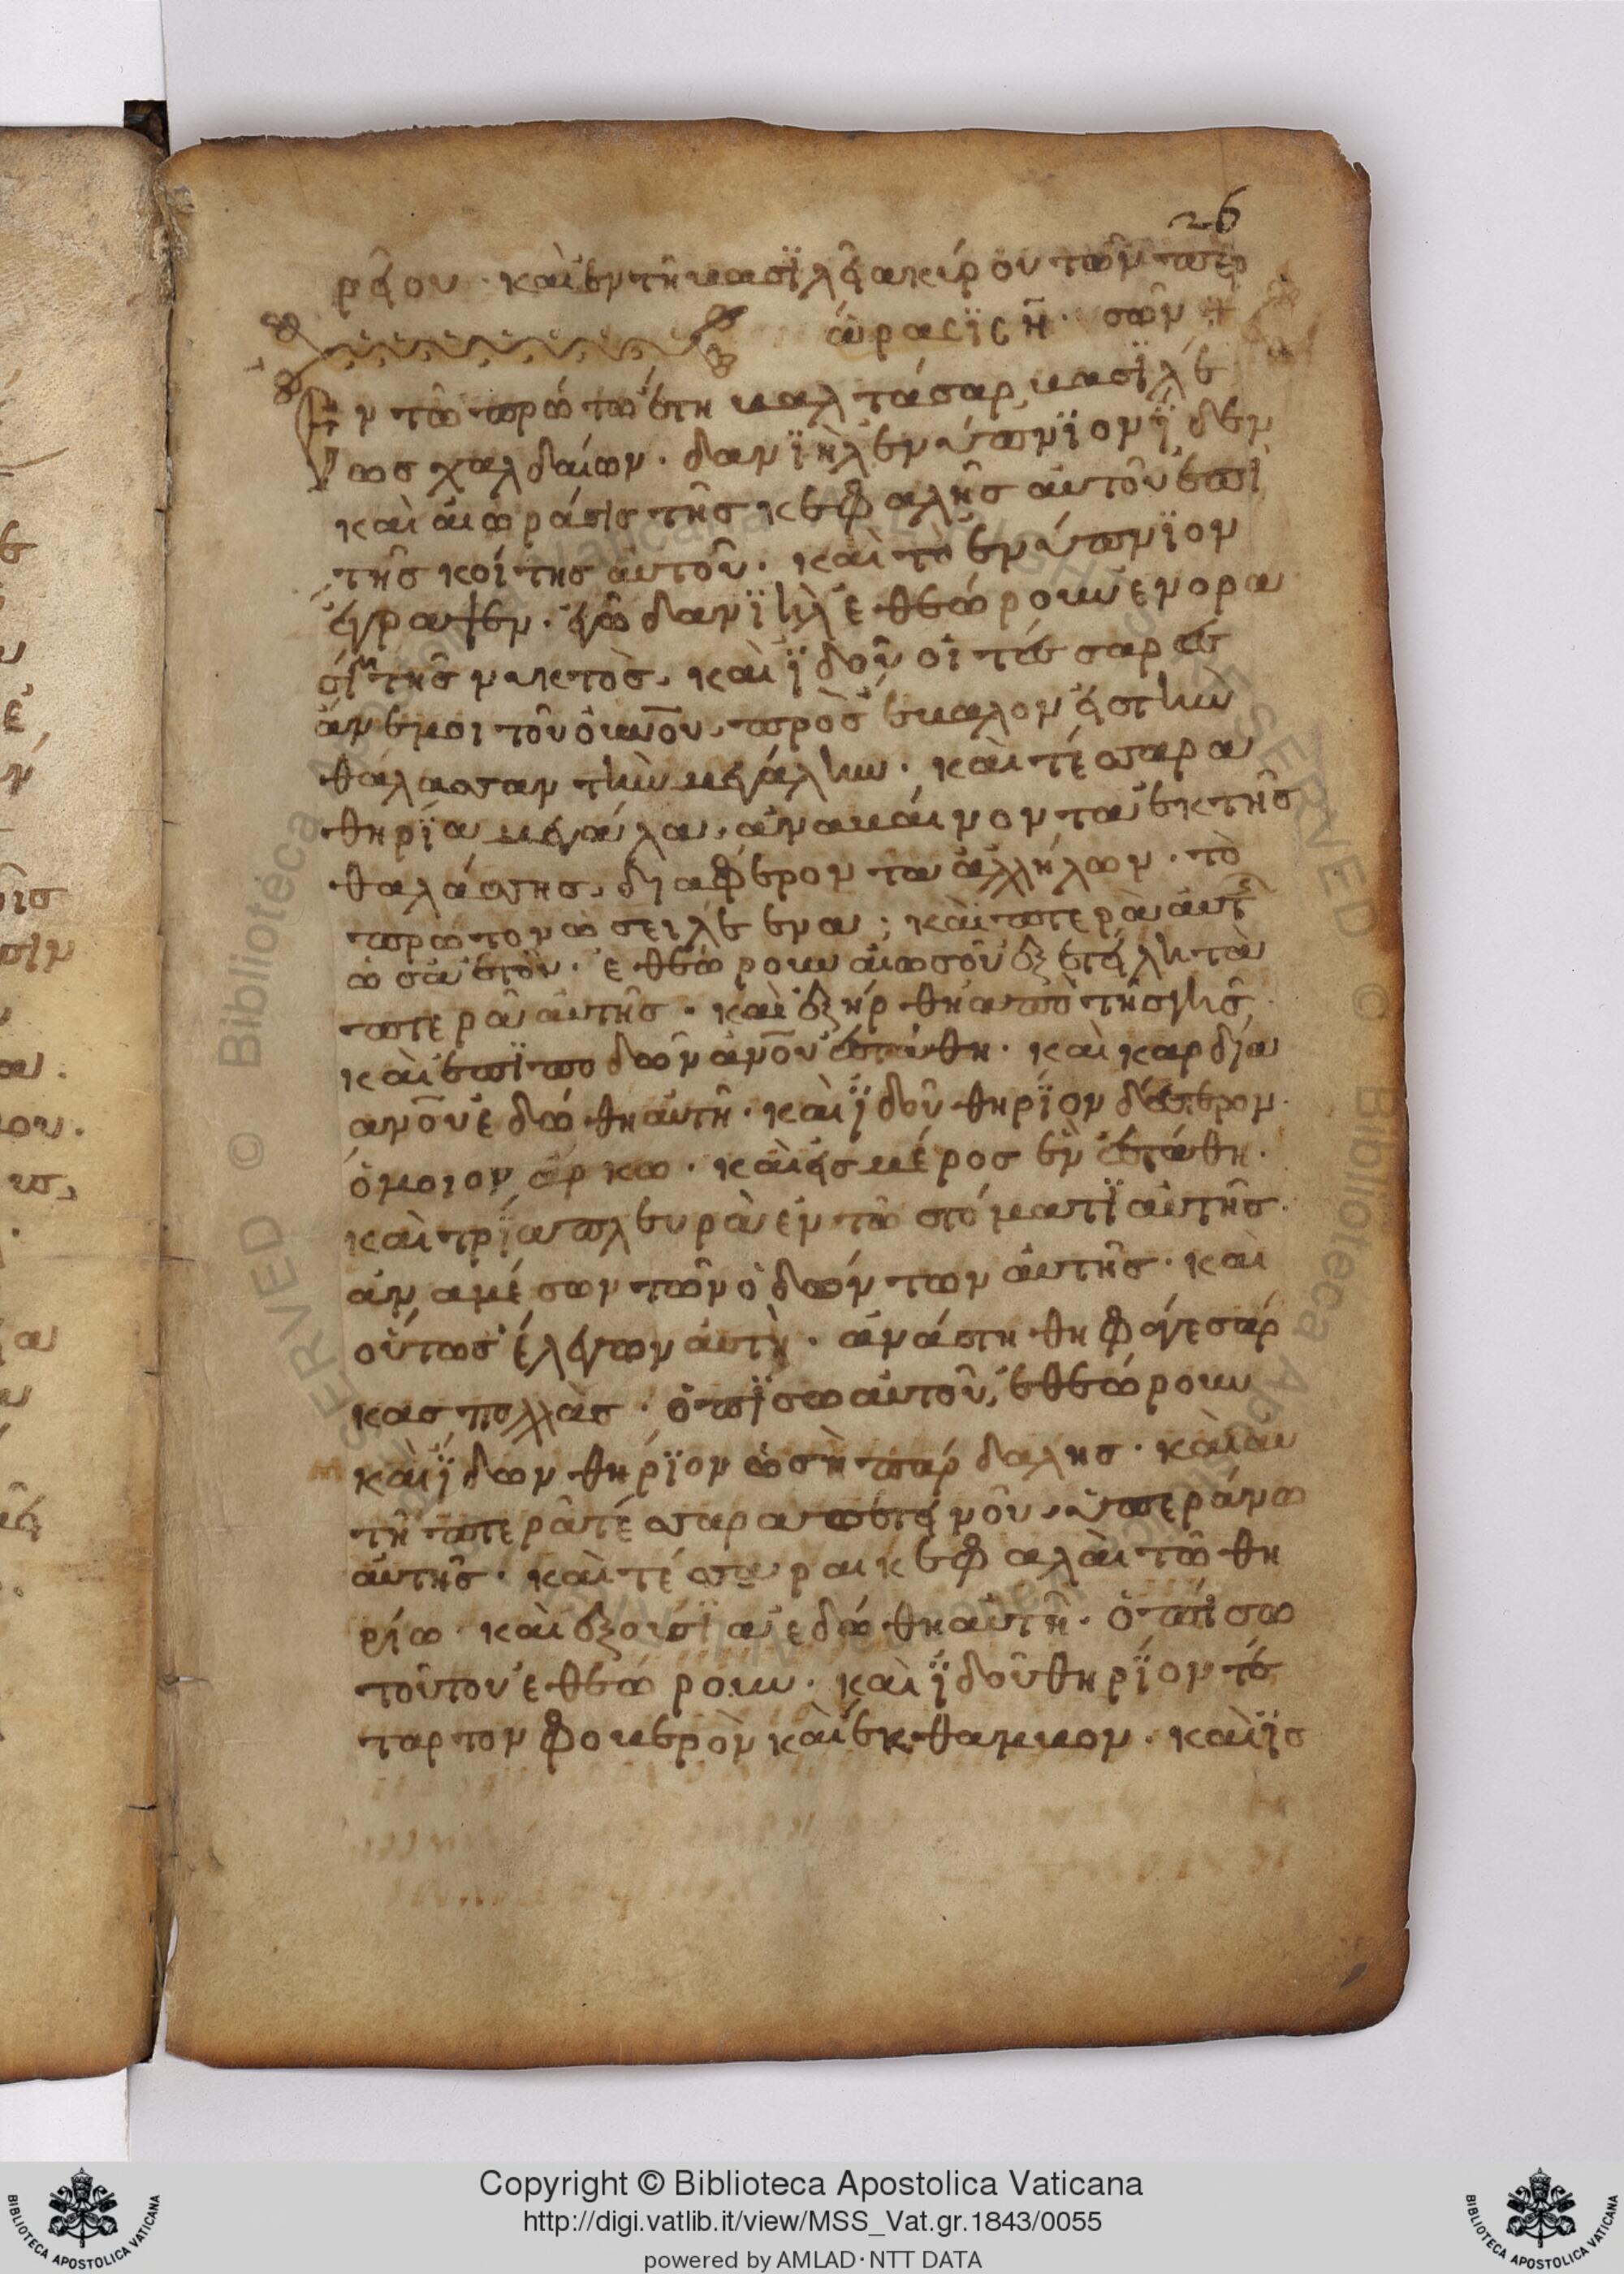 26
ρείου · καὶ ἐν τῆ βασϊλεία κύρου τῶν περ
ὡρασϊς ἡ σῶν +
Ἐν τῶ πρώτω ἔτη βαλτάσαρ, βασϊλέ
ωσ χαλδαίων · δανϊὴλ ἐνύπνϊον ϊδεν
καὶ αἱ ὡράσισ τῆσ κεφαλῆσ αὐτοῦ ἐπὶ
τῆσ κοίτησ αὐτοῦ · καὶ τὸ ἐνύπνϊον
ἔγραψεν · ἐγὼ δανϊὴλ ἐθεώρουν ἐν ορα
σίν τῆσ νυκτὸσ, καὶ ϊδοῦ οἱ τέσσαρεσ
ἄνεμοι τοῦ οὐνοῦ, προσέβαλον εἰσ τὴν
θάλασσαν τὴν μεγάλην · καὶ τέσσαρα
θηρϊα μεγάλα, ἀναβαίνοντα ἐκ τῆσ
θαλάσσησ, διαφέροντα ἀλλήλων · τὸ
πρωτον ὡσει λέενα ; καὶ πτερὰ αὐτῆ
ὡσ ἀετοῦ · ἐθεώρουν αἱωσοῦ ἐξετείλη τὰ
πτερὰ αὐτῆσ · καὶ ἐξήρθη ἀπὸ τῆσ γῆσ,
καὶ ἐπϊ ποδῶν ἀνοῦ ἐστάθη · καὶ καρδία
ανοῦ ἐδώθη αὐτῆ · καὶ ϊδοῦ θηρϊον δεύτερον ·
ὅμοιον ἄρκω · καὶ εἰσ μέροσ ἓν ἐστάθη ·
καὶ τρϊα πλευρὰ ἐν τῶ στόματϊ αὐτῆσ ·
ἀναμέσων τῶν ὀδώντων αὐτῆσ · καὶ
οὕτωσ ἔλεγων αὐτὴ · ἀνάστηθη φάγε σάρ
κασ πολλὰσ · ὀπϊσω αὐτοῦ, ἐθεώρουν
καὶ ϊδων θηρϊον ὡσὴ πάρδαλησ · καὶ αὐ
τῆ πτερὰ τέσσαρα πετεινοῦ, ὑπεράνω
αὐτῆσ · καὶ τέσσαραι κεφαλαὶ τῶ θη
ρίω καὶ ἐξουσϊα ἐδώθη αὐτῆ · ὀπίσω
τοῦτου ἐθεώρουν · καὶ ϊδοῦ θηρϊον τέ
ταρτον φουβερὸν καὶ ἔκθαμβον · καὶ ϊσ
Copyright © Biblioteca Apostolica Vaticana
http://digi.vatlib.it/view/MSS_Vat.gr.1843/0055
powered by AMLAD · NTT DATA
BIBLIOTECA APOSTOLICA VATICANA
BIBLIOTECA APOSTOLICA VATICANA